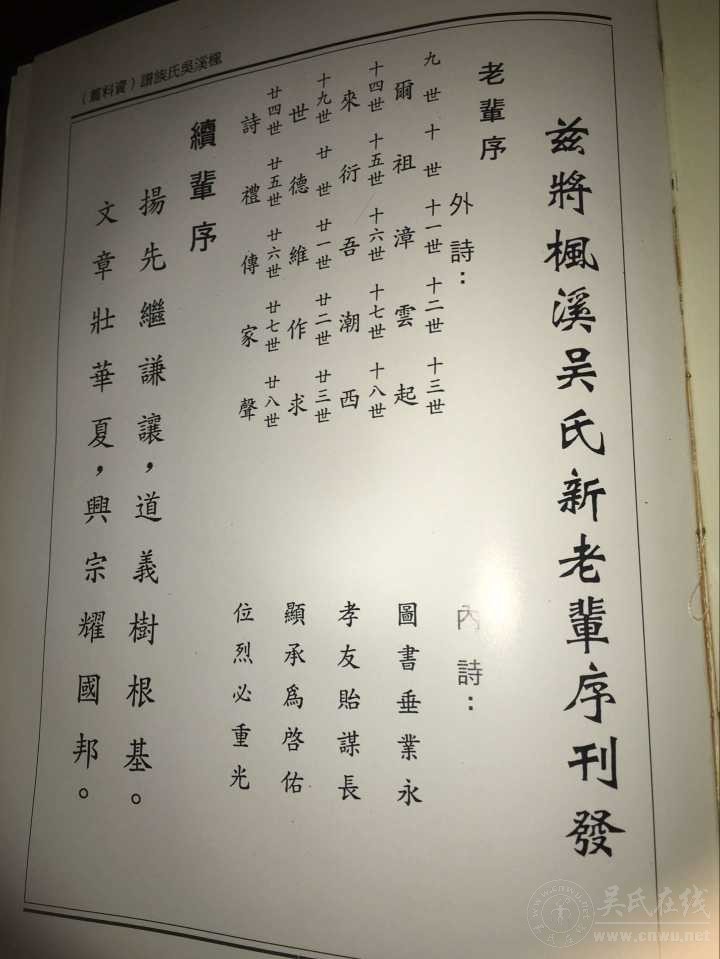 楓溪吳氏族譜（資料篇）
茲將楓溪吴氏新老輩序刊發
老輩序
外詩：
九世 十世 十一世 十二世 十三世
爾祖漳雲起
十四世 十五世 十六世 十七世 十八世
來衍吾潮西
十九世 廿世 廿一世 廿二世 廿三世
世德維作求
廿四世 廿五世 廿六世 廿七世 廿八世
詩禮傳家聲
內詩：
圖書垂業永
孝友貽謀長
顯承爲啓佑
位烈必重光
續輩序
揚先繼謙讓，道義樹根基。
文章壯華夏，興宗耀國邦。
吴氏在线
www.cnwu.net